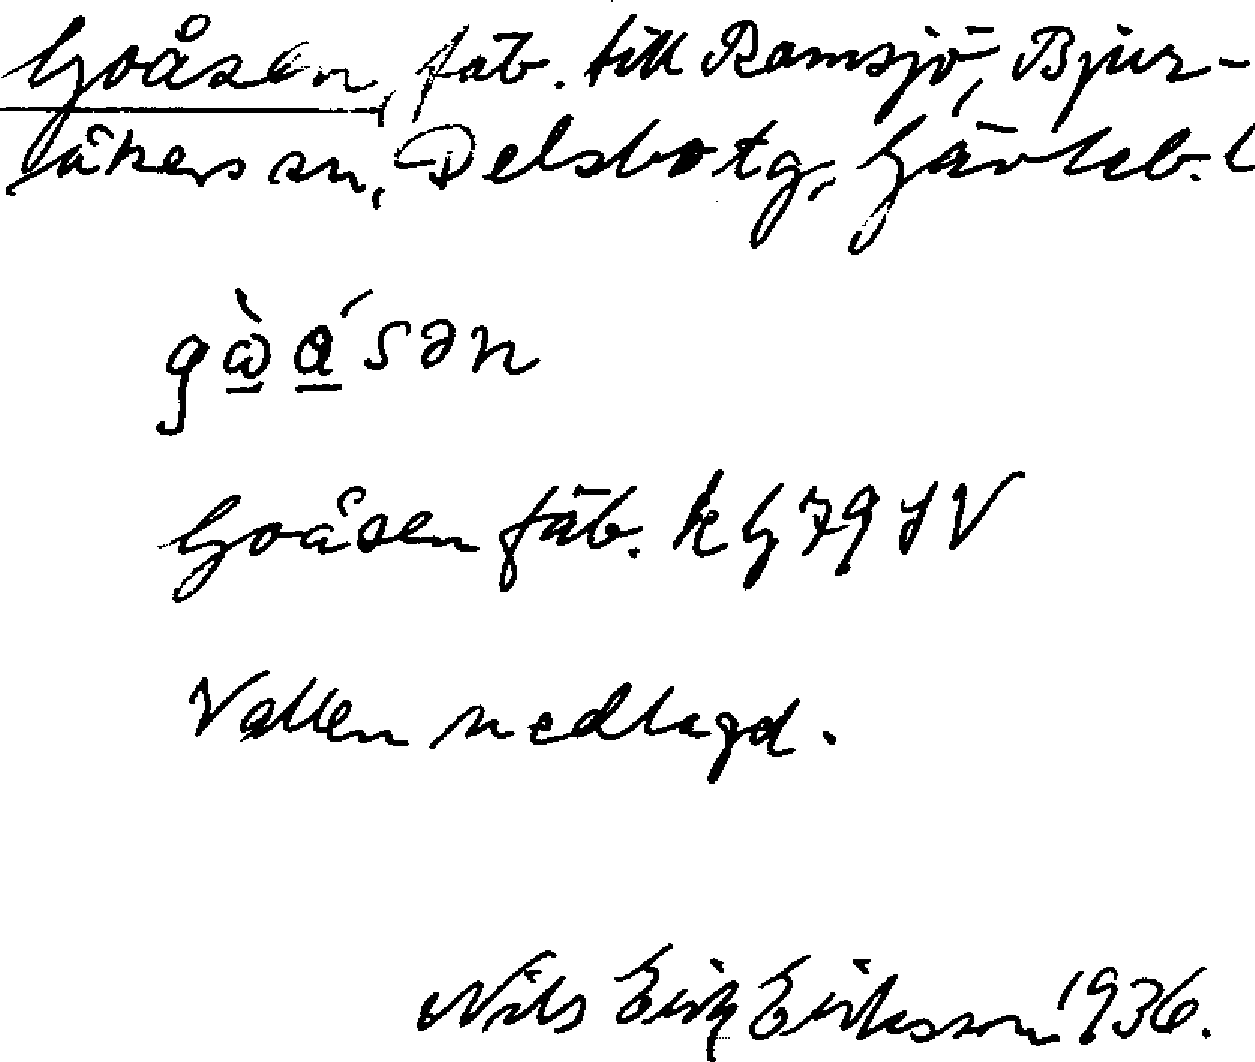 Goåsen, fäb. till Ramsjö, Bjur-
åkers sn, Delsbo tg, Gävleb. l
gὼ̱ á̱sən
Goåsen fäb. k G 79 SV
Vallen nedlagd.
Nils Erik Eriksson 1936.